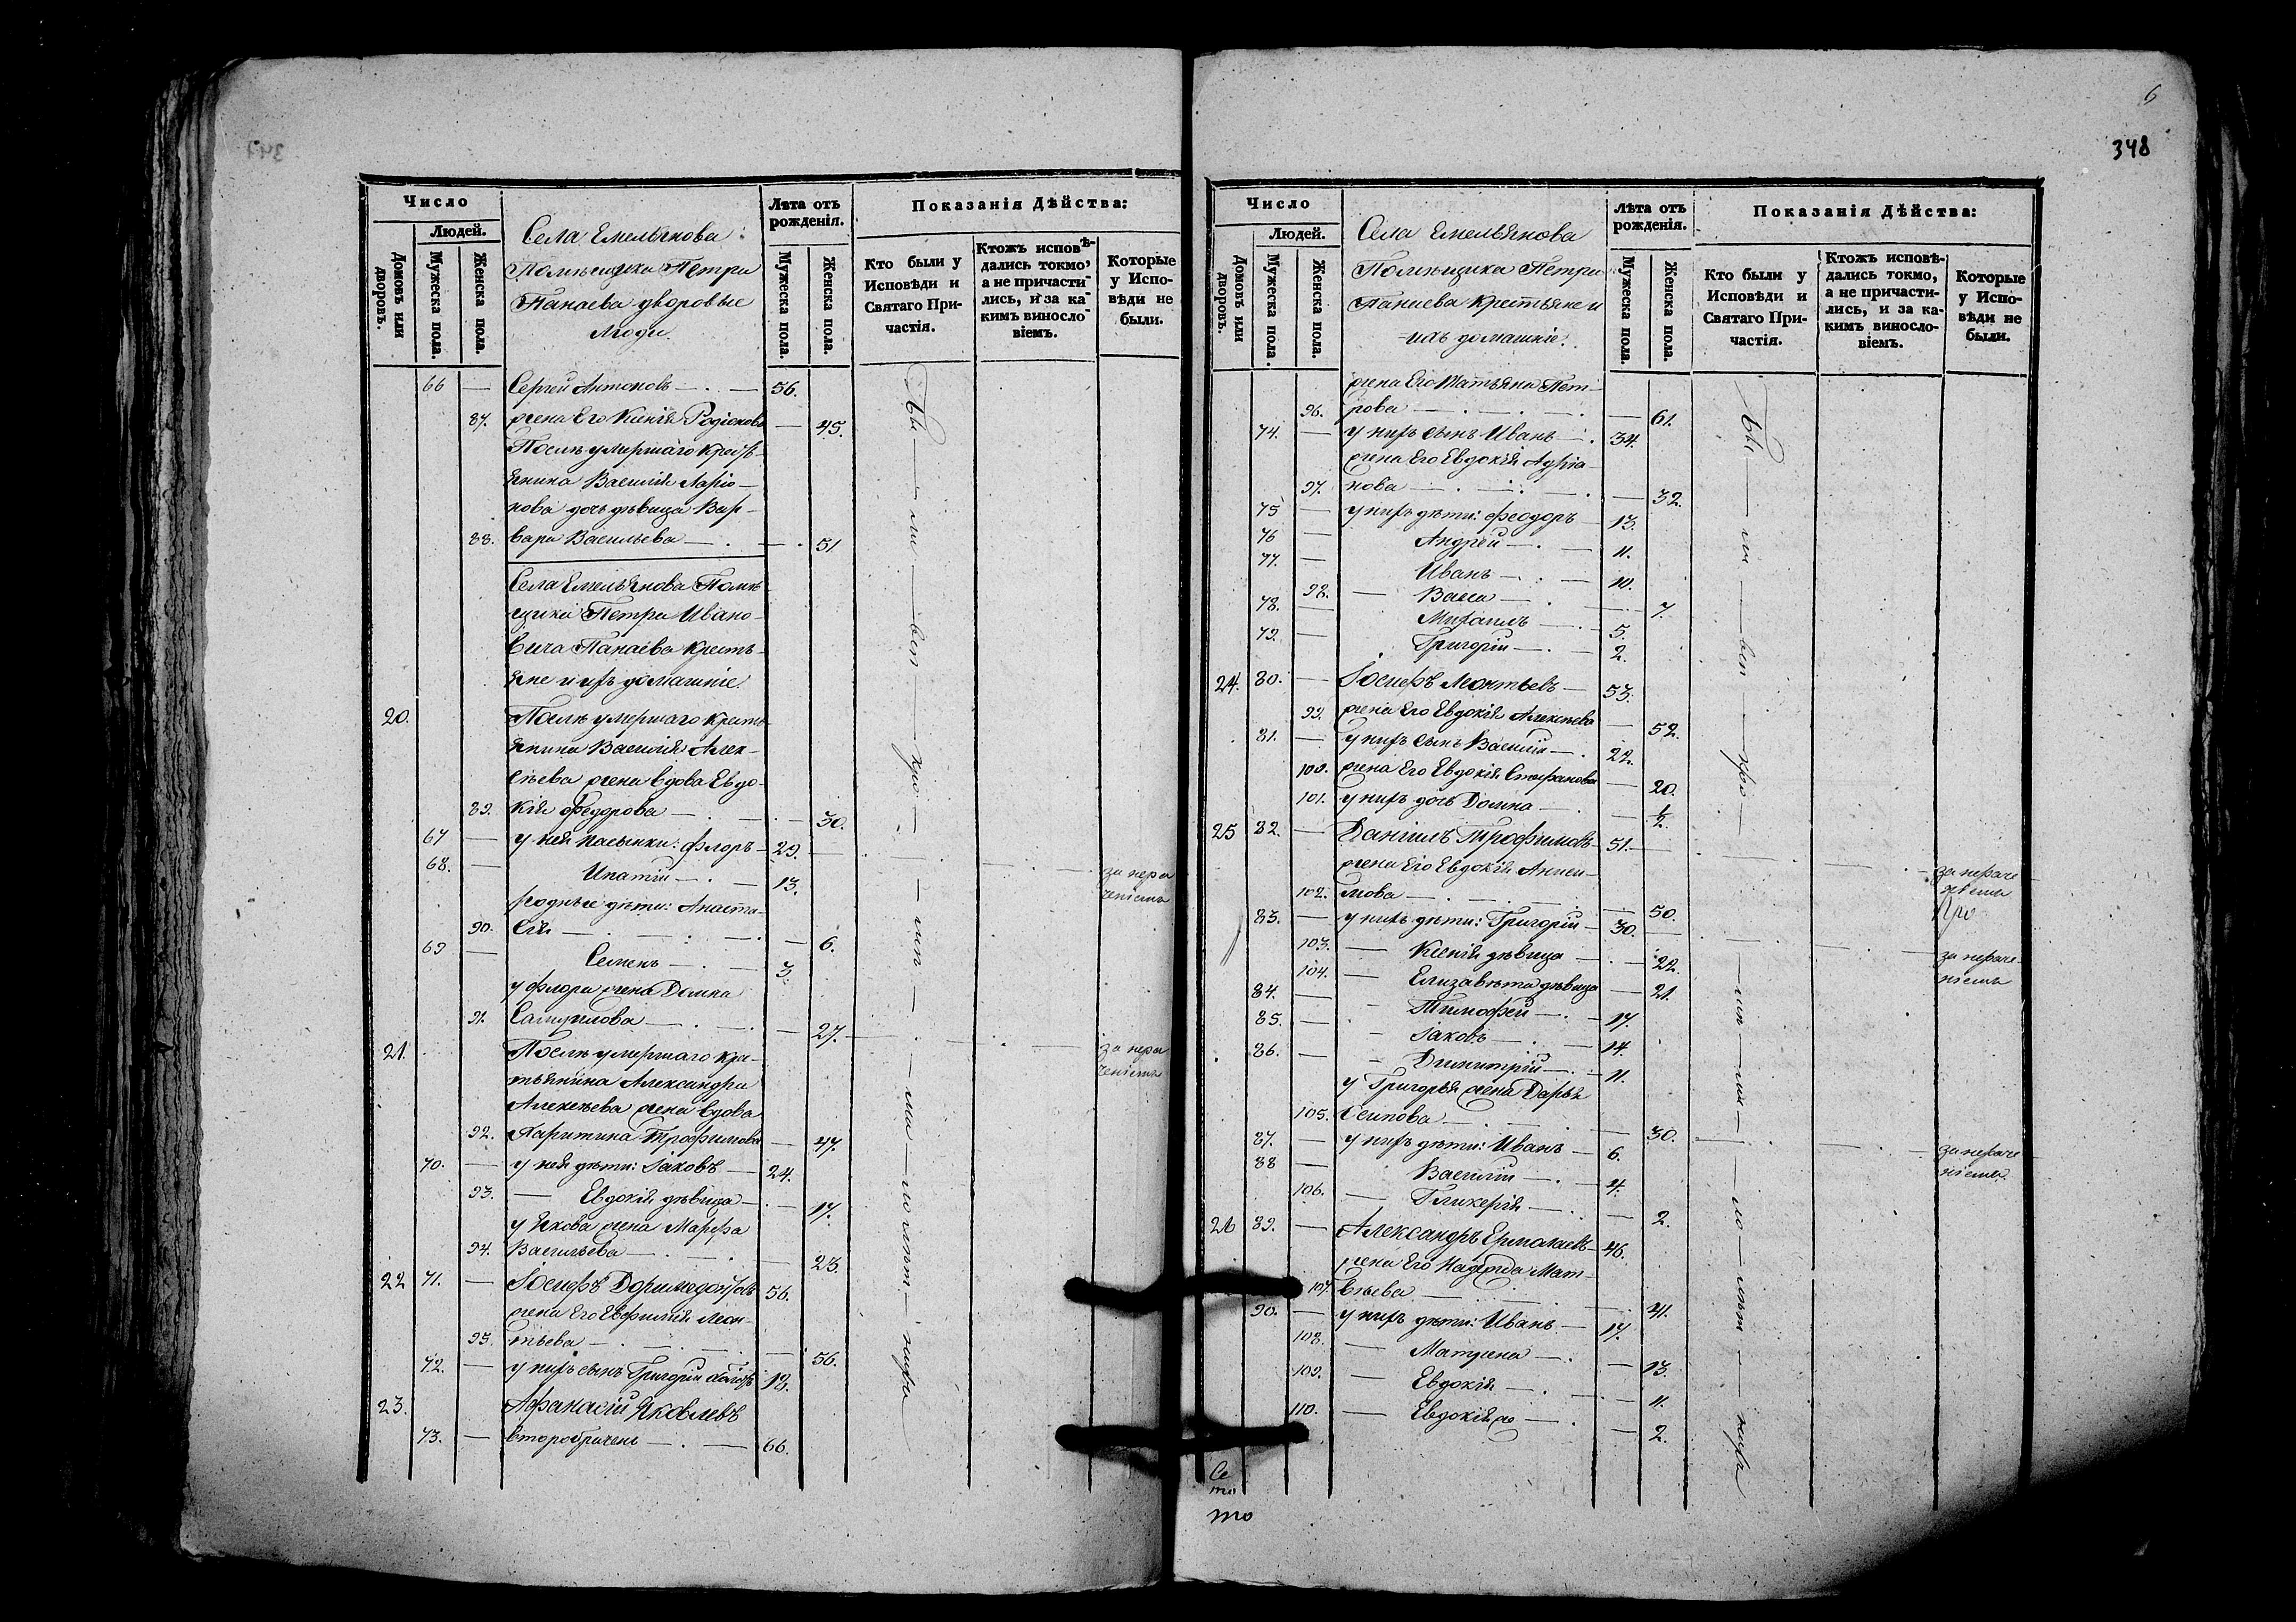 347
Число
Людей.
Домовъ или дворовъ.
Мужеска пола.
Женска пола.
Села Емельянова
Помѣщика Петра
Панаева дворовые
люди.
Лѣта отъ рожденія.
Мужеска пола.
Женска пола.
Показанія Дѣйства:
Кто были у Исповѣди и Святаго Причастія.
Ктожъ исповѣдались токмо, а не причастились, и за какимъ винословіемъ.
Которые у Исповѣди не были.
66 — Сергей Антоновъ — 56.
87. жена Его Ксенія Родіонова — 45.
Послѣ умершаго крестья-
янина Василія Ларіо-
нова дочь дѣвица Вар-
88. вара Васильева — 51
Села Емельянова Помѣ-
щика Петра Ивано-
вича Панаева крестья-
яне и ихъ домашніе.
20. Послѣ умершаго кресть-
янина Василія Алек-
сѣева жена вдова Евдо-
89. кія Федорова — 30.
67 — у ней пасынки: Флоръ — 29.
68. — Ипатій — 13. за нера
родные дѣти: Анаста- ченіемъ
90. сія — 6.
69 — Семенъ — 3.
у Флора жена Домна
91. Самуилова — 27.
21. Послѣ умершаго кре- за нера
стьянина Александра ченіемъ
Алексѣева жена вдова
92. Харитина Трофимова — 47.
70. — у ней дѣти: Іаковъ — 24.
93. — Евдокія дѣвица — 17.
у Якова жена Марфа
94. Васильева — 23.
22 71. — Іосифъ Доримедонтовъ 56.
жена Его Евфимія Леон-
95. тьева — 56.
72. — у нихъ сынъ Григорій холостъ 18.
23. Афанасій Яковлевъ
73. — второбрачень — 66.
Бы — ли — всѣ — кро —
6
348
Число
Людей.
Домовъ или дворовъ.
Мужеска пола.
Женска пола.
Села Емельянова
Помѣщика Петра
Панаева Крестьяне и
ихъ домашніе.
Лѣта отъ рожденія.
Мужеска пола.
Женска пола.
Показанія Дѣйства:
Кто были у Исповѣди и Святаго Причастія.
Ктожъ исповѣдались токмо, а не причастились, и за какимъ винословіемъ.
Которые у Исповѣди не были.
жена Его Татьяна Пет-
96. рова — 61.
74. — у нихъ сынъ Иванъ — 34.
жена Его Евдокія Адріа-
97. нова — 32.
75 — у нихъ дѣти: Феодоръ — 13.
76 — Андрей — 11.
77. — Иванъ — 10.
98. — Васса — 7.
78. — Михаилъ — 5.
79. — Григорій — 2.
24. 80. — Іосифъ Леонтьевъ — 53.
99. жена Его Евдокія Алексѣева — 52.
81. — у нихъ сынъ Василій — 22.
100. жена Его Евдокія Стефанова — 20.
101. у нихъ дочь Домна — ½.
25 82. — Даніилъ Трофимовъ — 51. за нераче
жена Его Евдокія Аниси- ніемъ
102. мова — 50.
83. — у нихъ дѣти: Григорій — 30. за нераче-
103. — Ксенія дѣвица — 22. ніемъ
104. — Елизавѣта дѣвица — 21.
84. — Тимофей — 17.
85. — Іаковъ — 14.
86. — Димитрій — 11.
у Григорья жена Дарья
105. Осипова — 30. за нераче
87. — у нихъ дѣти: Иванъ — 6. ніемъ
88 — Василій — 4.
106. — Гликерія — 2.
26 89. — Александръ Ермолаевъ — 46.
жена Его Надежда Мат-
107. вѣева — 41.
90. — у нихъ дѣти: Иванъ — 17.
108. — Матрена — 13.
109. — Евдокія — 11.
110. — Евдокія — 2.
Бы — ли — всѣ — кро —
Се
то